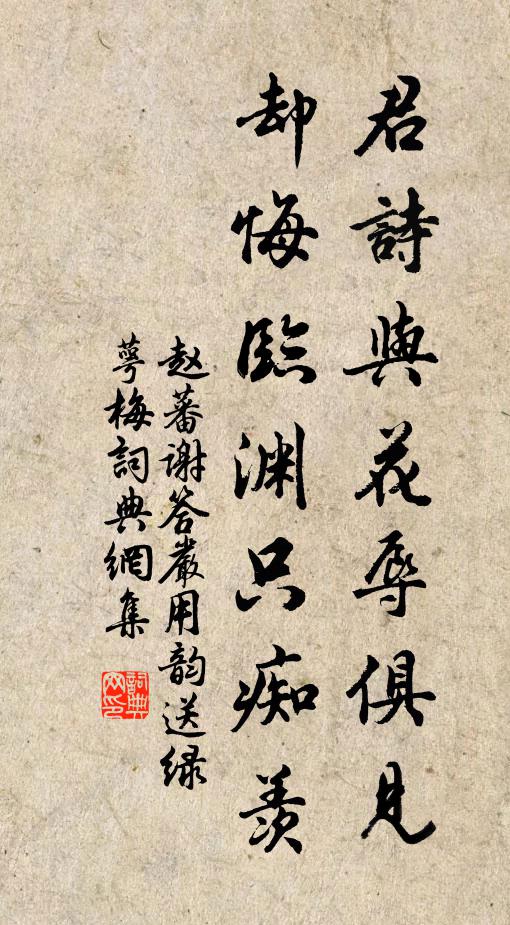 君詩與花辱俱見
却悔臨渊只痴羨
赵蕃谢答嚴用韵送绿
萼梅詞典網集
詞典網印